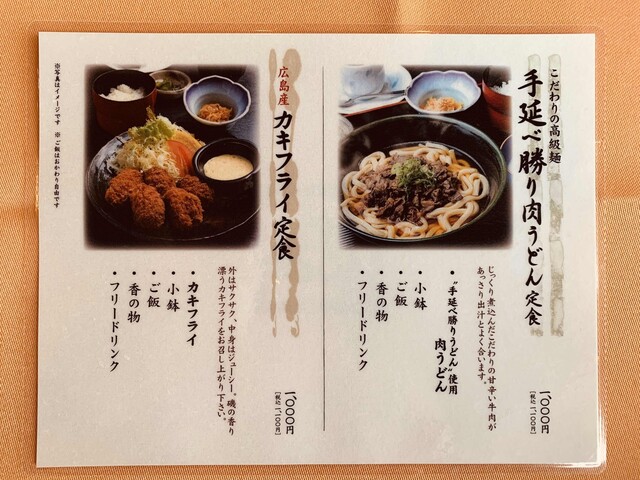 こだわりの高級麺
手延べ勝り肉うどん定食
じっくり煮込んだこだわりの甘辛い牛肉が
あっさり出汁とよく合います。
・“手延べ勝りうどん”使用
肉うどん
・小鉢
・ご飯
・香の物
・フリードリンク
1,000円
[税込 1,100円]
広島産
カキフライ定食
外はサクサク、中身はジューシー。磯の香り
漂うカキフライをお召し上がり下さい。
・カキフライ
・小鉢
・ご飯
・香の物
・フリードリンク
1,000円
[税込 1,100円]
※写真はイメージです ※ご飯はおかわり自由です